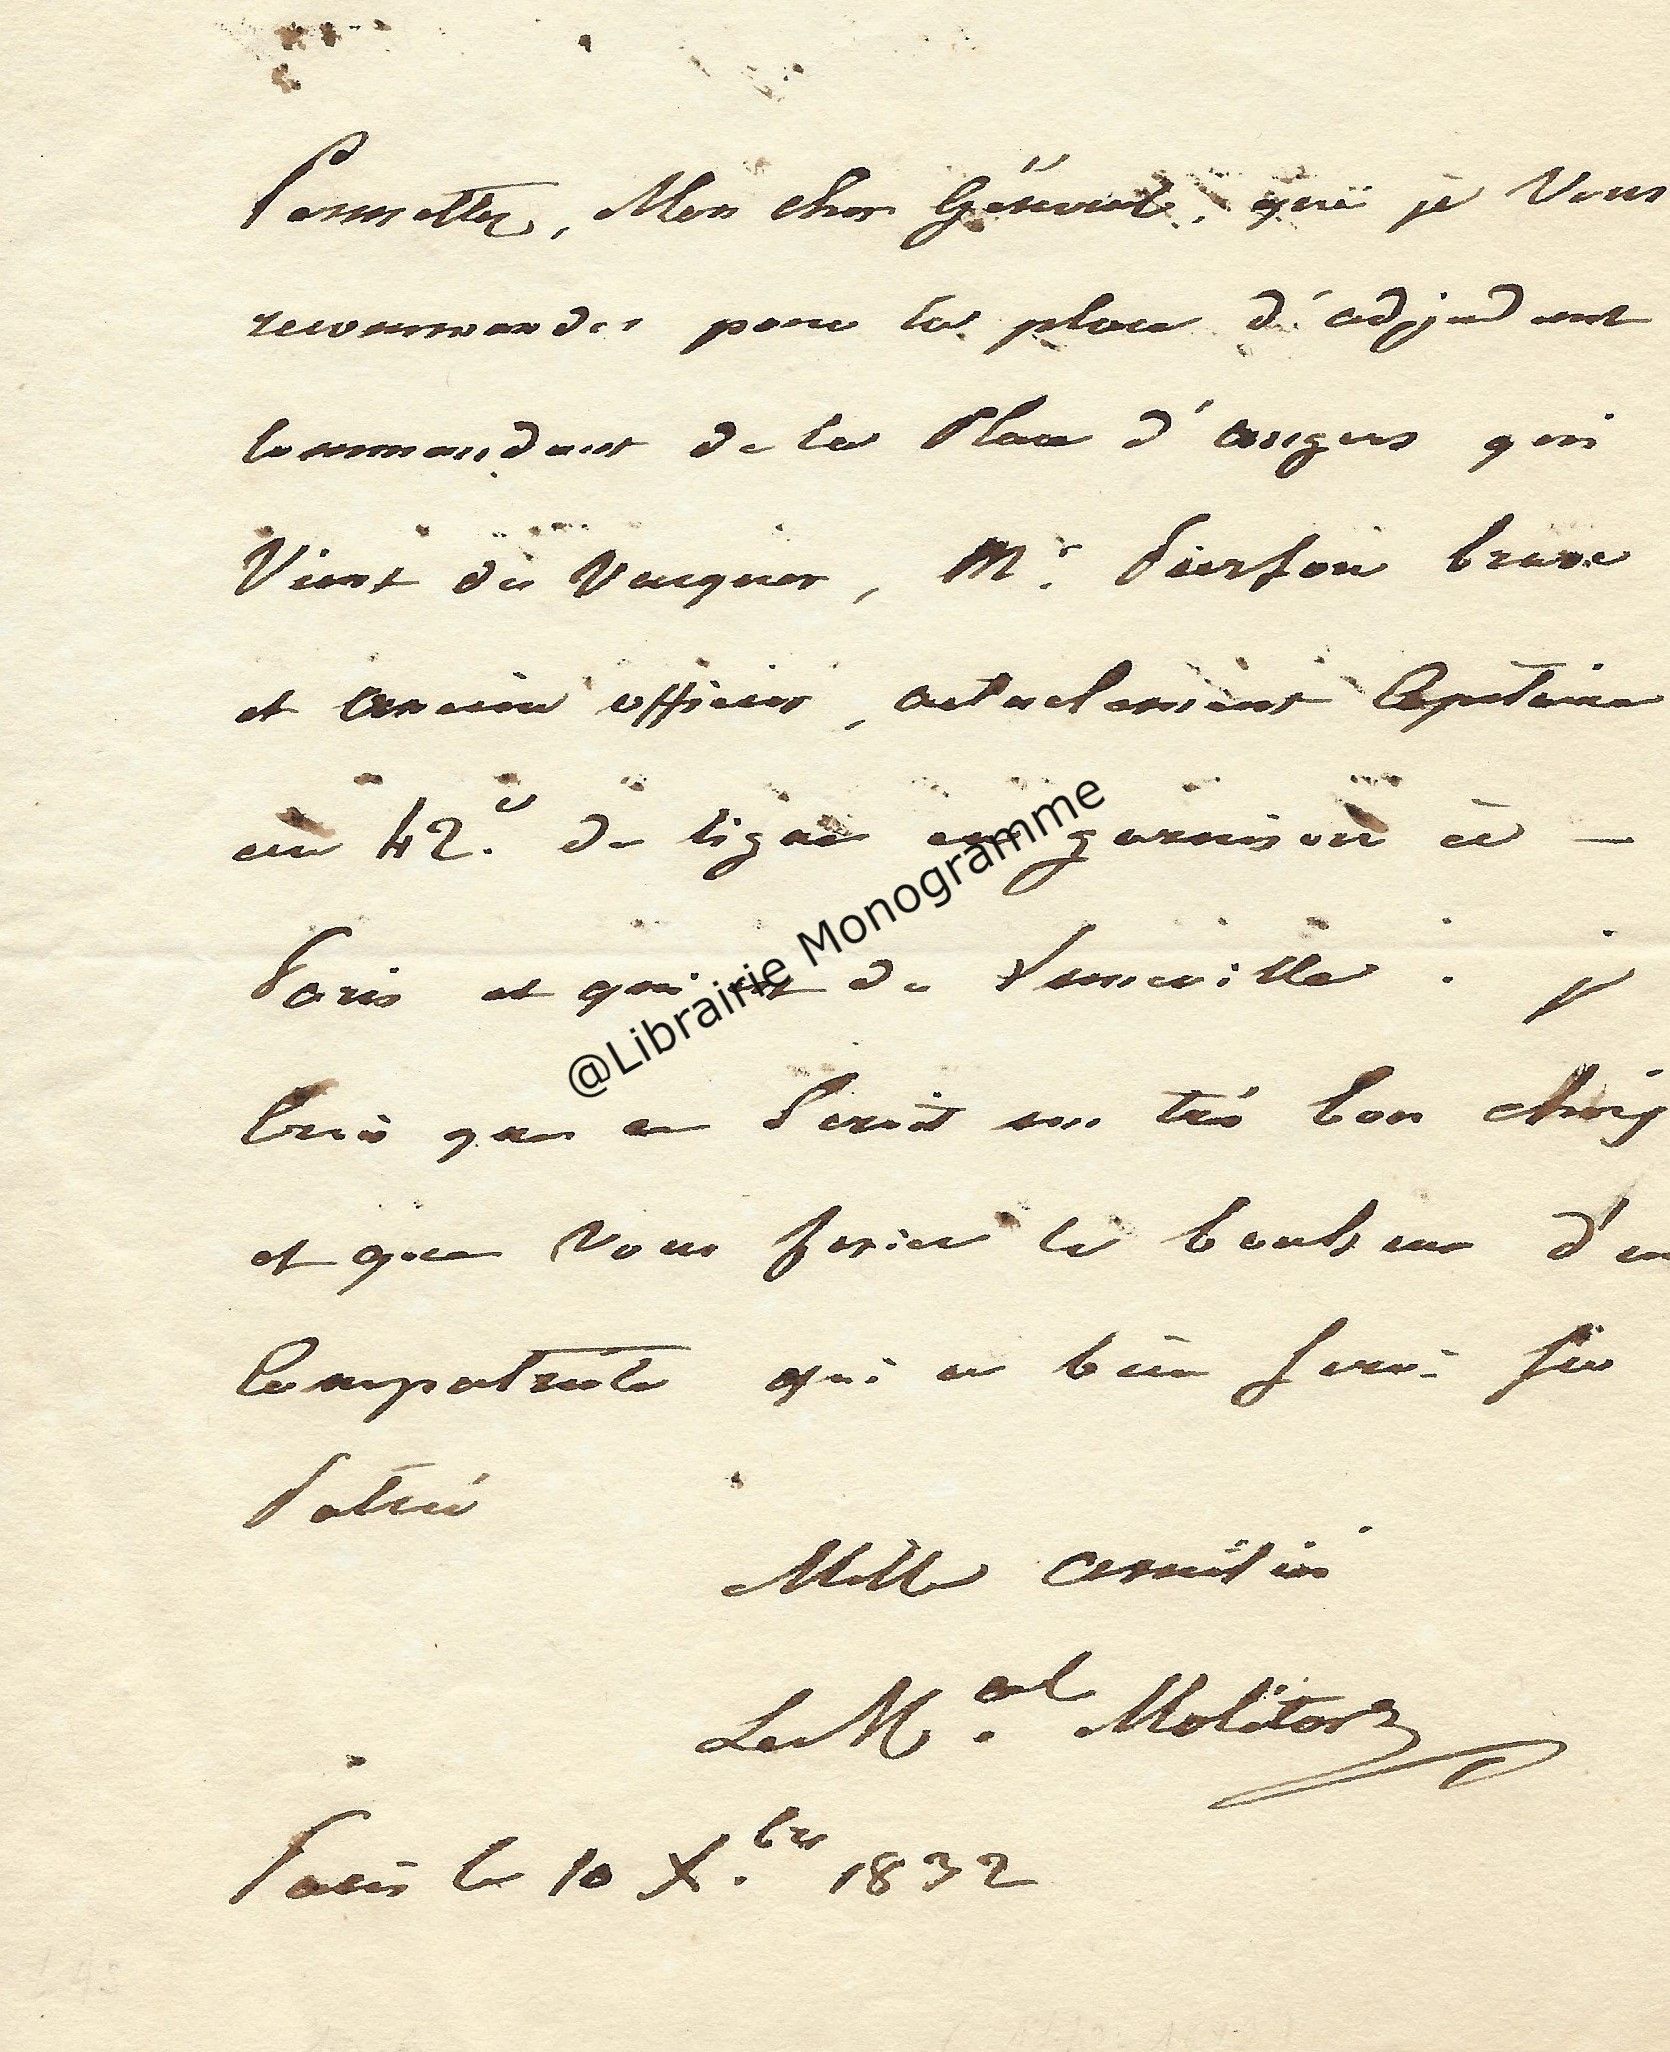 Permettez, Mon cher Général, que je Vous
recommander pour la place d'adjudant
Commandant de la Place d'angers qui
Vient de Vacquer, Mr. Pierson brave
et ancien officier, actuelement Capitaine
au 42.e de ligne en garnison à —
Paris et qui est de Luneville. je
Crois que ce serait un très bon choix
et que vous feriez le bonheur d'un
Compatriote qui a bien servi sa
Patrie
Mille amitiés
Le M.al Molitor
Paris le 10 X.bre 1832
@Librairie Monogramme